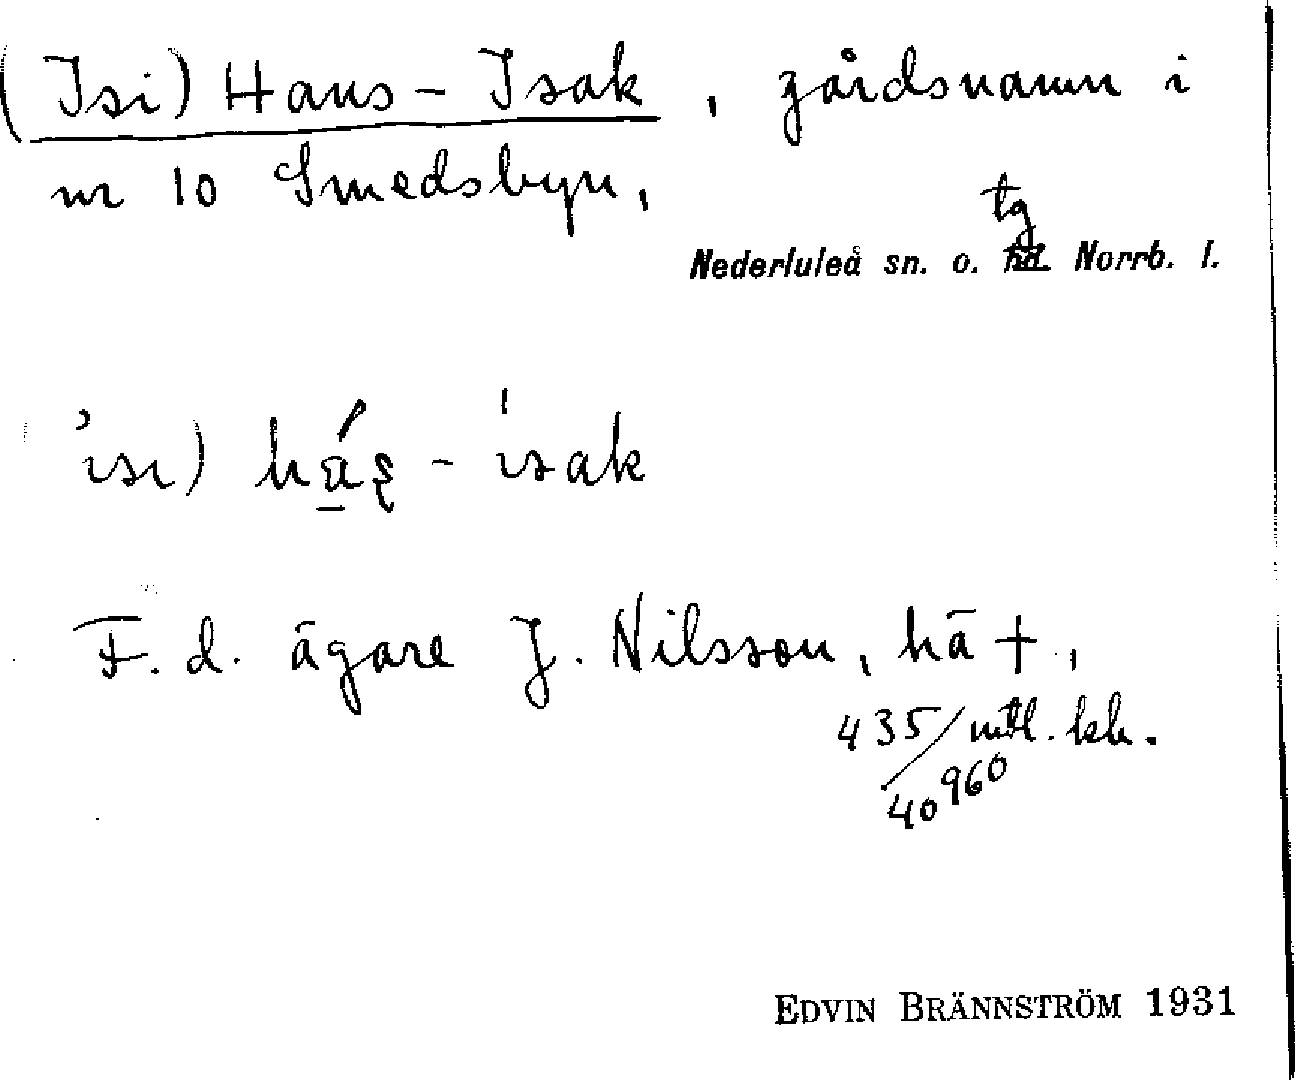 (Isi) Hans-Isak, gårdsnamn i
nr 10 Smedsbyn,
tg
Nederluleå sn. o. hd. Norrb. l.
ısı) há̱ş - ısak
F. d. ägare J. Nilsson, hä †,
435/40960 mtl. kr.
EDVIN BRÄNNSTRÖM 1931